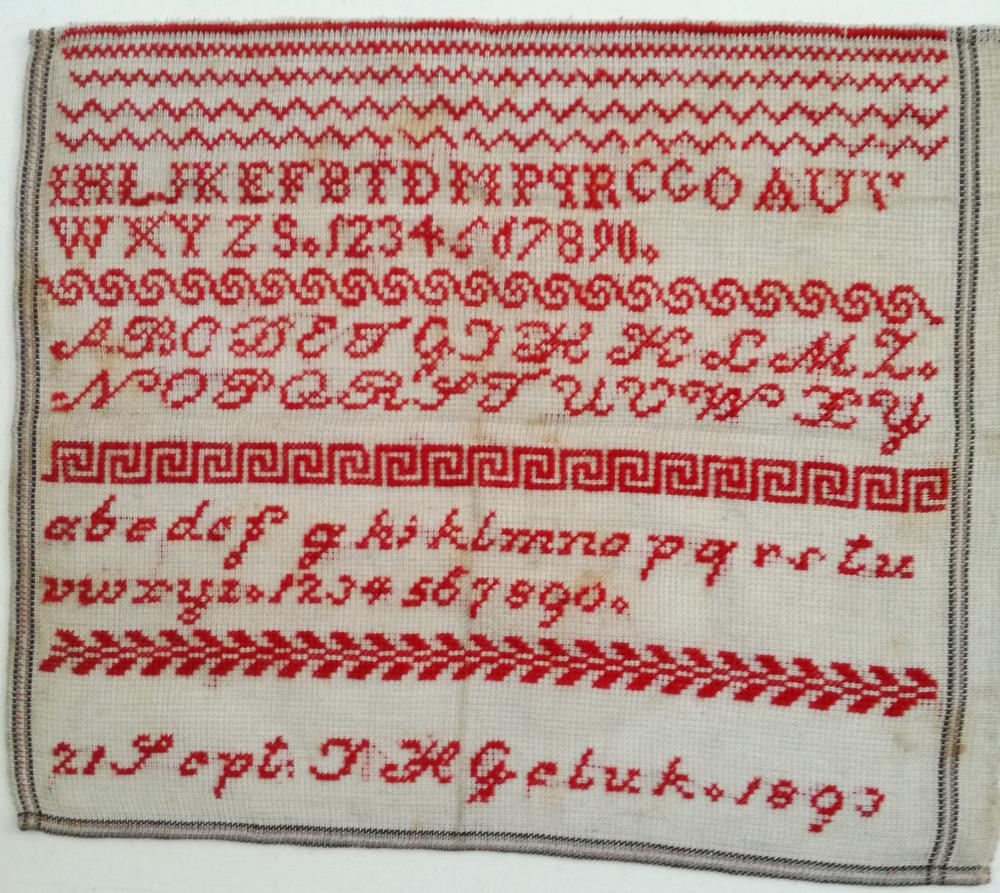 IHLJKEFBTDMPQRCGOAUV
WXYZS.1234567890.
ABCDEFGIHKLMZ.
NOPQRSTUVWXY
abcdefghijklmnopqrstu
vwxyz.1234567890.
21 Sept. J H Getuk. 1893